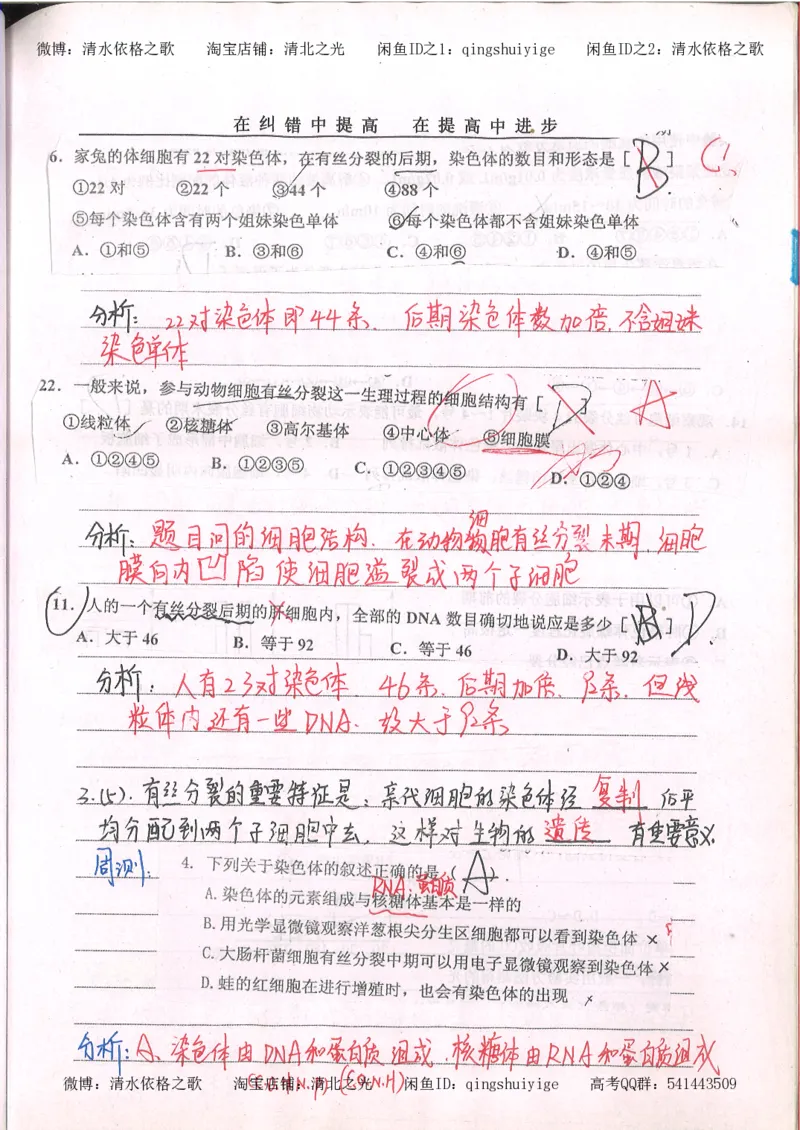 微博：清水依格之歌 淘宝店铺：清北之光 闲鱼ID之1：qingshuiyige 闲鱼ID之2：清水依格之歌
在纠错中提高 在提高中进步
6．家兔的体细胞有 22 对染色体，在有丝分裂的后期，染色体的数目和形态是［B］ C
①22 对 ②22 个 ③44 个 ④88 个
⑤每个染色体含有两个姐妹染色单体 ⑥每个染色体都不含姐妹染色单体
A．①和⑤ B．③和⑥ C．④和⑥ D．④和⑤
分析：22对染色体即44条．后期染色体数加倍，不含姐妹
染色单体
22．一般来说，参与动物细胞有丝分裂这一生理过程的细胞结构有［D］ A
①线粒体 ②核糖体 ③高尔基体 ④中心体 ⑤细胞膜
A．①②④⑤ B．①②③⑤ C．①②③④⑤ D．①②④
分析：题目问的细胞结构．在动物细胞有丝分裂末期，细胞
膜向内凹陷使细胞缢裂成两个子细胞
11．人的一个有丝分裂后期的肝细胞内，全部的 DNA 数目确切地说应是多少［B］ D
A．大于 46 B．等于 92 C．等于 46 D．大于 92
分析：人有23对染色体．46条．后期加倍．92条．但线
粒体内还有一些DNA．故大于92条
3.(5)．有丝分裂的重要特征是：亲代细胞的染色体经 复制 后平
均分配到两个子细胞中去，这样对生物的 遗传 有重要意义
周测：
4．下列关于染色体的叙述正确的是（A）．
RNA，蛋白质
A.染色体的元素组成与核糖体基本是一样的
B.用光学显微镜观察洋葱根尖分生区细胞都可以看到染色体 ×
C.大肠杆菌细胞有丝分裂中期可以用电子显微镜观察到染色体 ×
D.蛙的红细胞在进行增殖时，也会有染色体的出现 ×
分析：A、染色体由DNA和蛋白质组成．核糖体由RNA和蛋白质组成
微博：清水依格之歌 淘宝店铺：清北之光 闲鱼ID：qingshuiyige 高考QQ群：541443509